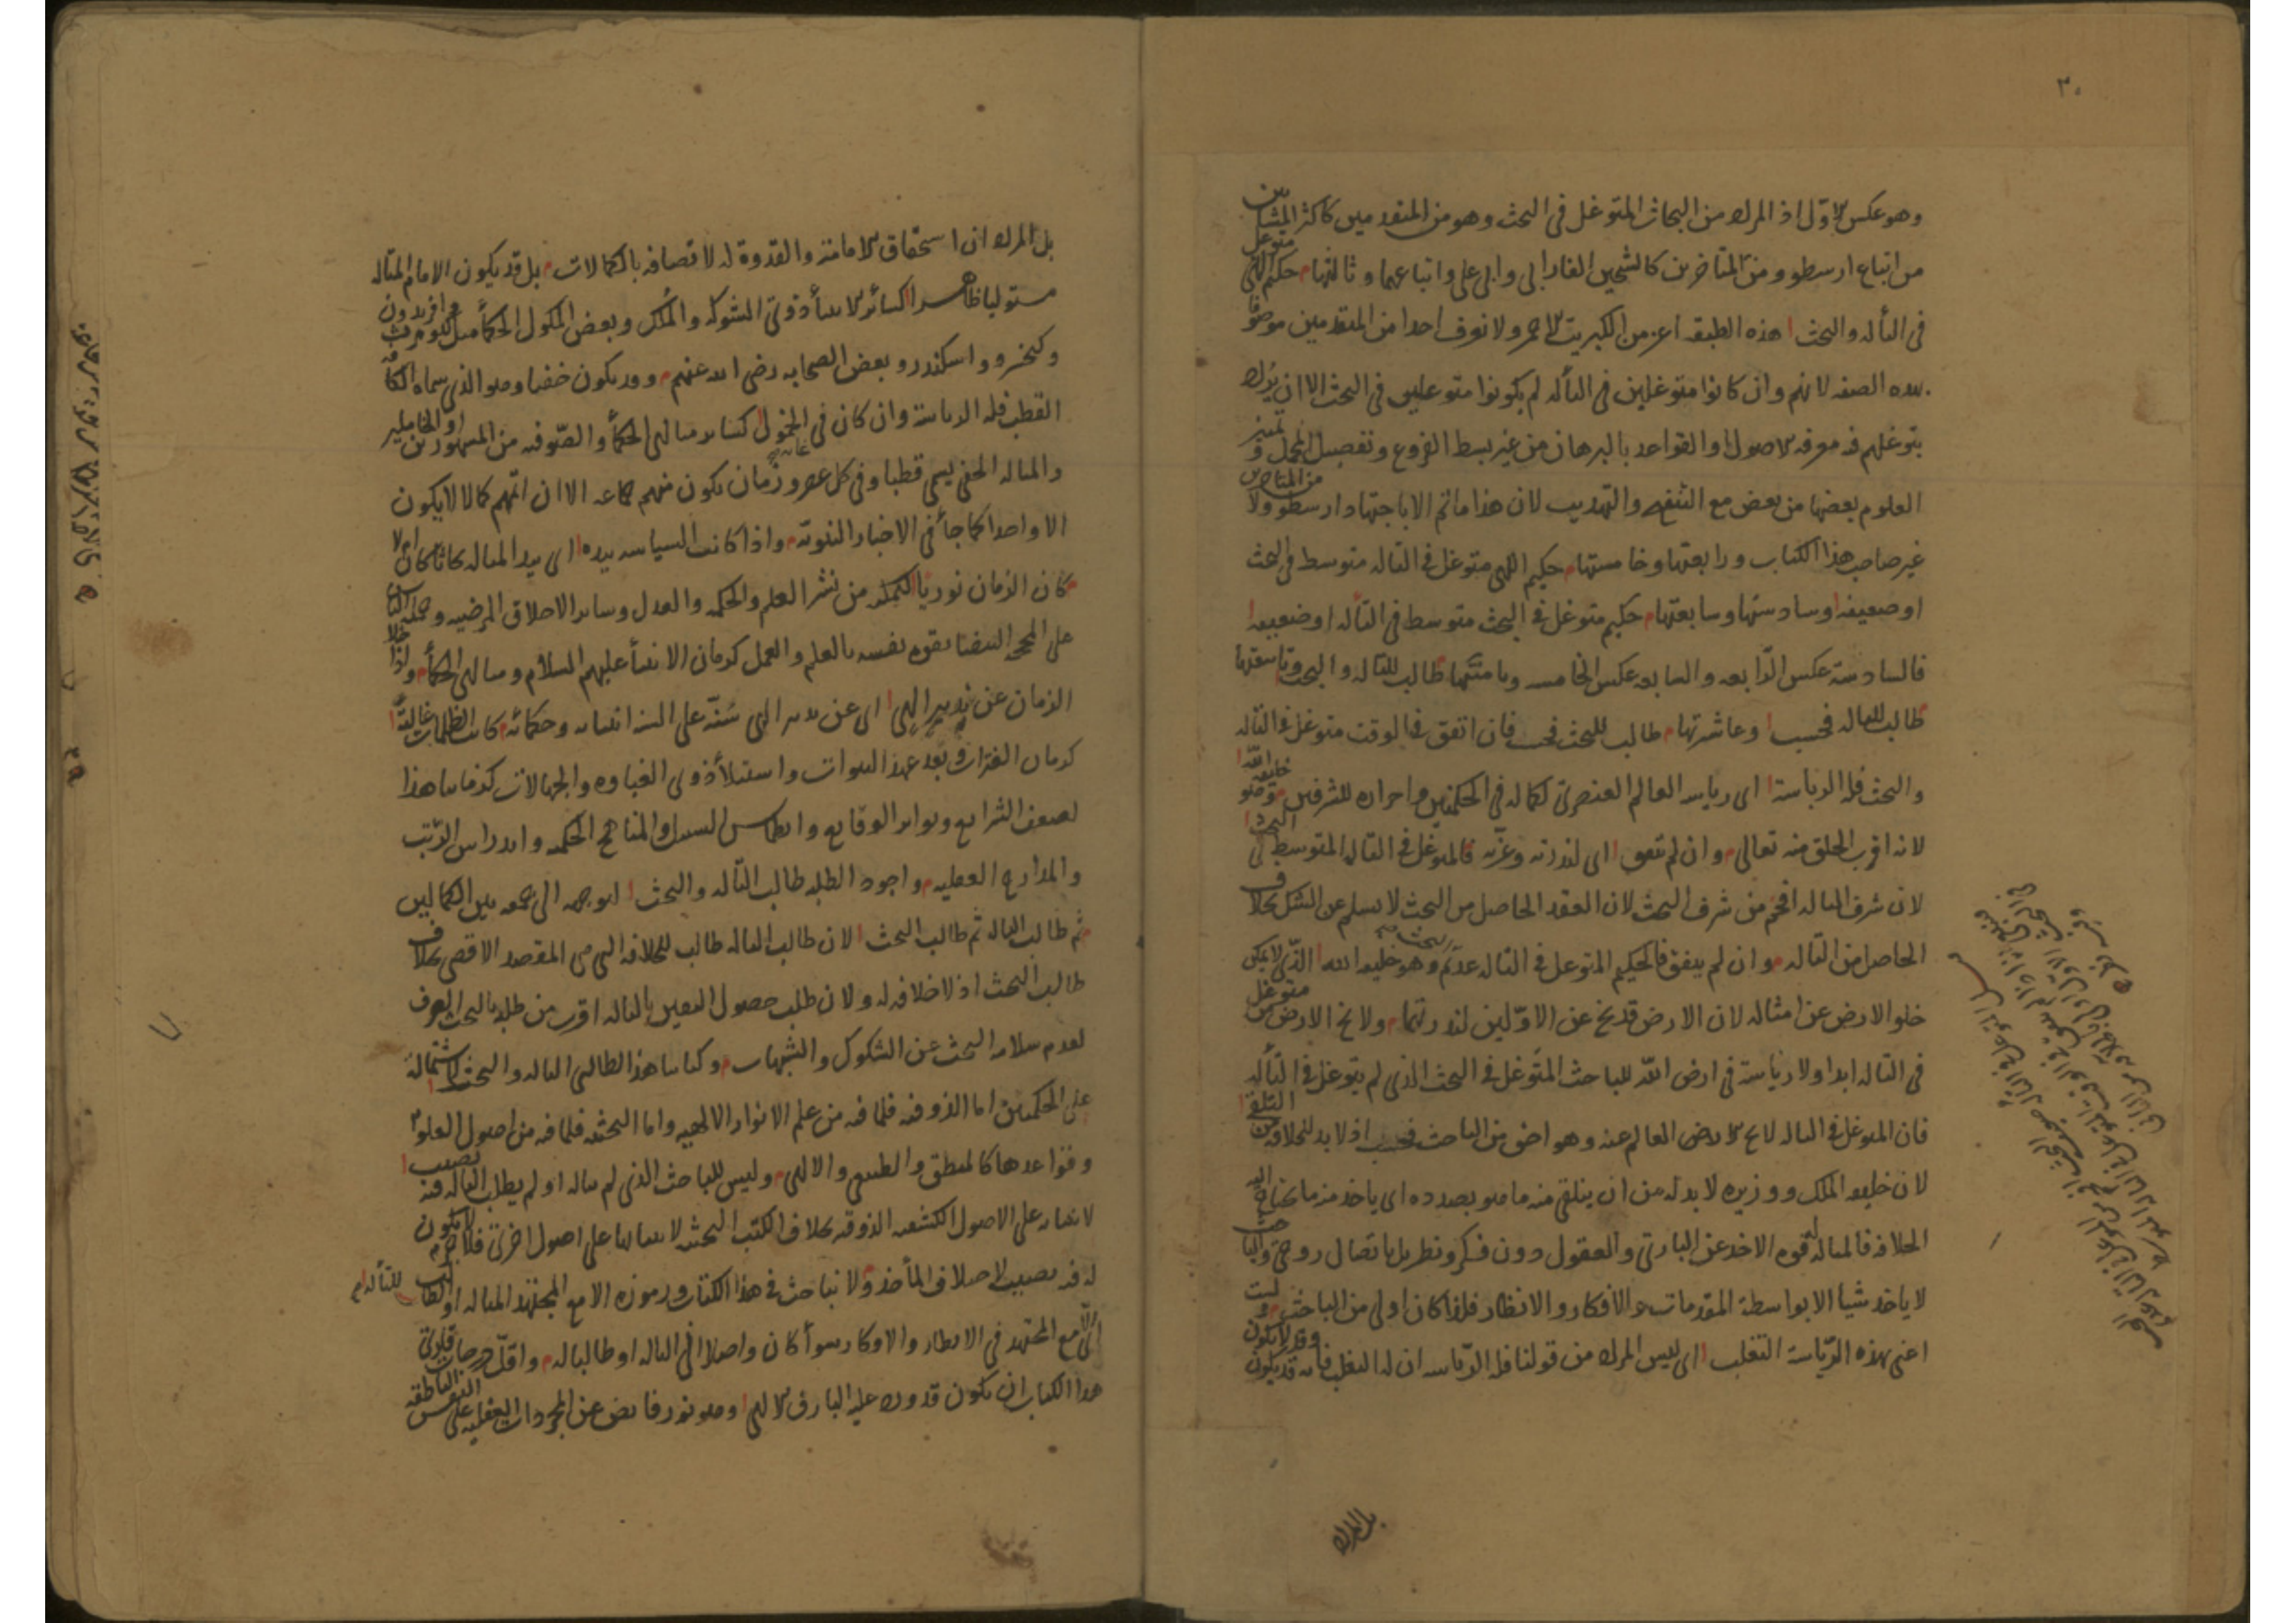 ٣٠
وهو عكس الاول اذ المراد من البحاث المتوغل فى البحث وهو من المتقدمين كاكثر المشائين
من اتباع ارسطو ومن المتاخرين كالشيخين الفارابى وابى على واتباعهما وثالثها حكيم الهى متوغل
فى التاله والبحث هذه الطبقه اعز من الكبريت الاحمر ولا نعرف احدا من المتقدمين موصوفا
بهذه الصفه لانهم وان كانوا متوغلين فى التأله لم يكونوا متوغلين فى البحث الا ان يراد
بتوغلهم فيه معرفه الاصول والقواعد بالبرهان من غير بسط الفروع وتفصيل المجمل وتمييز
العلوم بعضها من بعض مع التنقيح والتهذيب لان هذا ما تم الا باجتهاد ارسطو ولا من المتاخرين
غير صاحب هذا الكتاب ورابعتها وخامستها حكيم الهى متوغل فى التاله متوسط فى البحث
او ضعيفه وسادستها وسابعتها حكيم متوغل فى البحث متوسط فى التأله او ضعيفه
فالسادسة عكس الرابعه والسابعه عكس الخامسه وثامنتها طالب للتاله والبحث وتاسعتها
طالب للتاله فحسب وعاشرتها طالب للبحث فحسب فان اتفق فى الوقت متوغل فى التاله
والبحث فله الرياسة اى رياسه العالم العنصرى لكماله فى الحكمتين واحرازه للشرفين وهو خليفه الله
لانه اقرب الخلق منه تعالى وان لم يتفق اى لندرته وعزته فالمتوغل فى التاله المتوسط فى البحث
لان شرف التاله افخم من شرف البحث لان العقد الحاصل من البحث لا يسلم عن الشك بخلاف
الحاصل من التاله وان لم يتفق فالحكيم المتوغل فى التاله عديم البحث وهو خليفه الله الذى لا يمكن
خلو الارض عن امثاله لان الارض قد يخ عن الاولين لندرتهما ولا يخ الارض من متوغل
فى التاله ابدا ولا رياسة فى ارض الله للباحث المتوغل فى البحث الذى لم يتوغل فى التأله
فان المتوغل فى التاله لا يخ الارض العالم عنه وهو احق من الباحث فحسب اذ لا بد للخلافه من التلقى
لان خليفه الملك ووزيره لا بد له من ان يتلقى منه ما هو بصدده اى ياخذ منه ما يحتاج اليه
الخلافه فالمتاله له قوه الاخذ عن البارى والعقول دون فكر ونظر بل باتصال روحى والباحث
لا ياخذ شيا الا بواسطة المقدمات والافكار والانظار فلذا كان اولى من الباحث ولست
اعنى بهذه الرياسة التغلب اى ليس المراد من قولنا فله الرياسه ان له التغلب فانه قد يكون وقد لا يكون
بل المراد
بل المراد ان استحقاق الامامة والقدوة له لاتصافه بالكمالات بل قد يكون الامام المتاله
مستوليا ظاهرا كسائر الانبيأ ذوى الشوكه والملك وبعض الملوك الحكمأ مثل كيومرث وافريدون
وكيخسرو واسكندر وبعض الصحابه رضى الله عنهم وقد يكون خفيا وهو الذى سماه الكافه
القطب فله الرياسة وان كان فى غايه الخمول كسائر متالهى الحكمأ والصوفيه من المشهورين او الخاملين
والمتاله الخفى يسمى قطبا وفى كل عصر وزمان يكون منهم جماعه الا ان اتمهم كمالا لا يكون
الا واحدا كما جأ فى الاخبار النبوية واذا كانت السياسه بيده اى بيد المتاله كائنا كان ام لا
كان الزمان نوريا لتمكنه من نشر العلم والحكمه والعدل وسائر الاخلاق المرضيه وحمله الناس
على المحجه البيضا بقوه نفسه بالعلم والعمل كزمان الانبيأ عليهم السلام ومتالهى الحكمأ واذا خلا
الزمان عن تدبير الهى اى عن تدبير الهى سنه على السنه انبيائه وحكمائه كانت الظلمات غالبة
كزمان الفترات وبعد عهد النبوات واستيلأ ذوى الغباوه والجهالات كزماننا هذا
لضعف الشرايع وتواتر الوقايع وانطماس السبل والمناهج الحكميه واندراس الرتب
والمدارج العقليه واجود الطلبه طالب التأله والبحث لتوجهه الى جمعه بين الكمالين
ثم طالب التاله ثم طالب البحث لان طالب التاله طالب للخلافه التى هى المقصد الاقصى بخلاف
طالب البحث اذ لا خلافه له ولان طلب حصول اليقين بالتاله اقرب من طلبه بالبحث الصرف
لعدم سلامه البحث عن الشكوك والشبهات وكتابنا هذا لطالبى التاله والبحث لاشتماله
على الحكمتين اما الذوقيه فلما فيه من علم الانوار الالهيه واما البحثيه فلما فيه من اصول العلوم
وقواعدها كالمنطق والطبيعى والالهى وليس للباحث الذى لم يتاله او لم يطلب التاله فيه نصيب
لابتنائه على الاصول الكشفيه الذوقيه بخلاف الكتب البحثيه لابتنائها على اصول اخرى فلا جرم لا يكون
له فيه نصيب لاختلاف المأخذ ولا نباحث فى هذا الكتاب ورموزه الا مع المجتهد المتاله او الطالب للتأله
الا مع المجتهد فى الانظار والافكار سوأ كان واصلا الى التاله او طالبا له واقل درجات قارئ
هذا الكتاب ان يكون قد ورد عليه البارق الالهى وهو نور فايض عن المجردات العقليه على النفس الناطقه